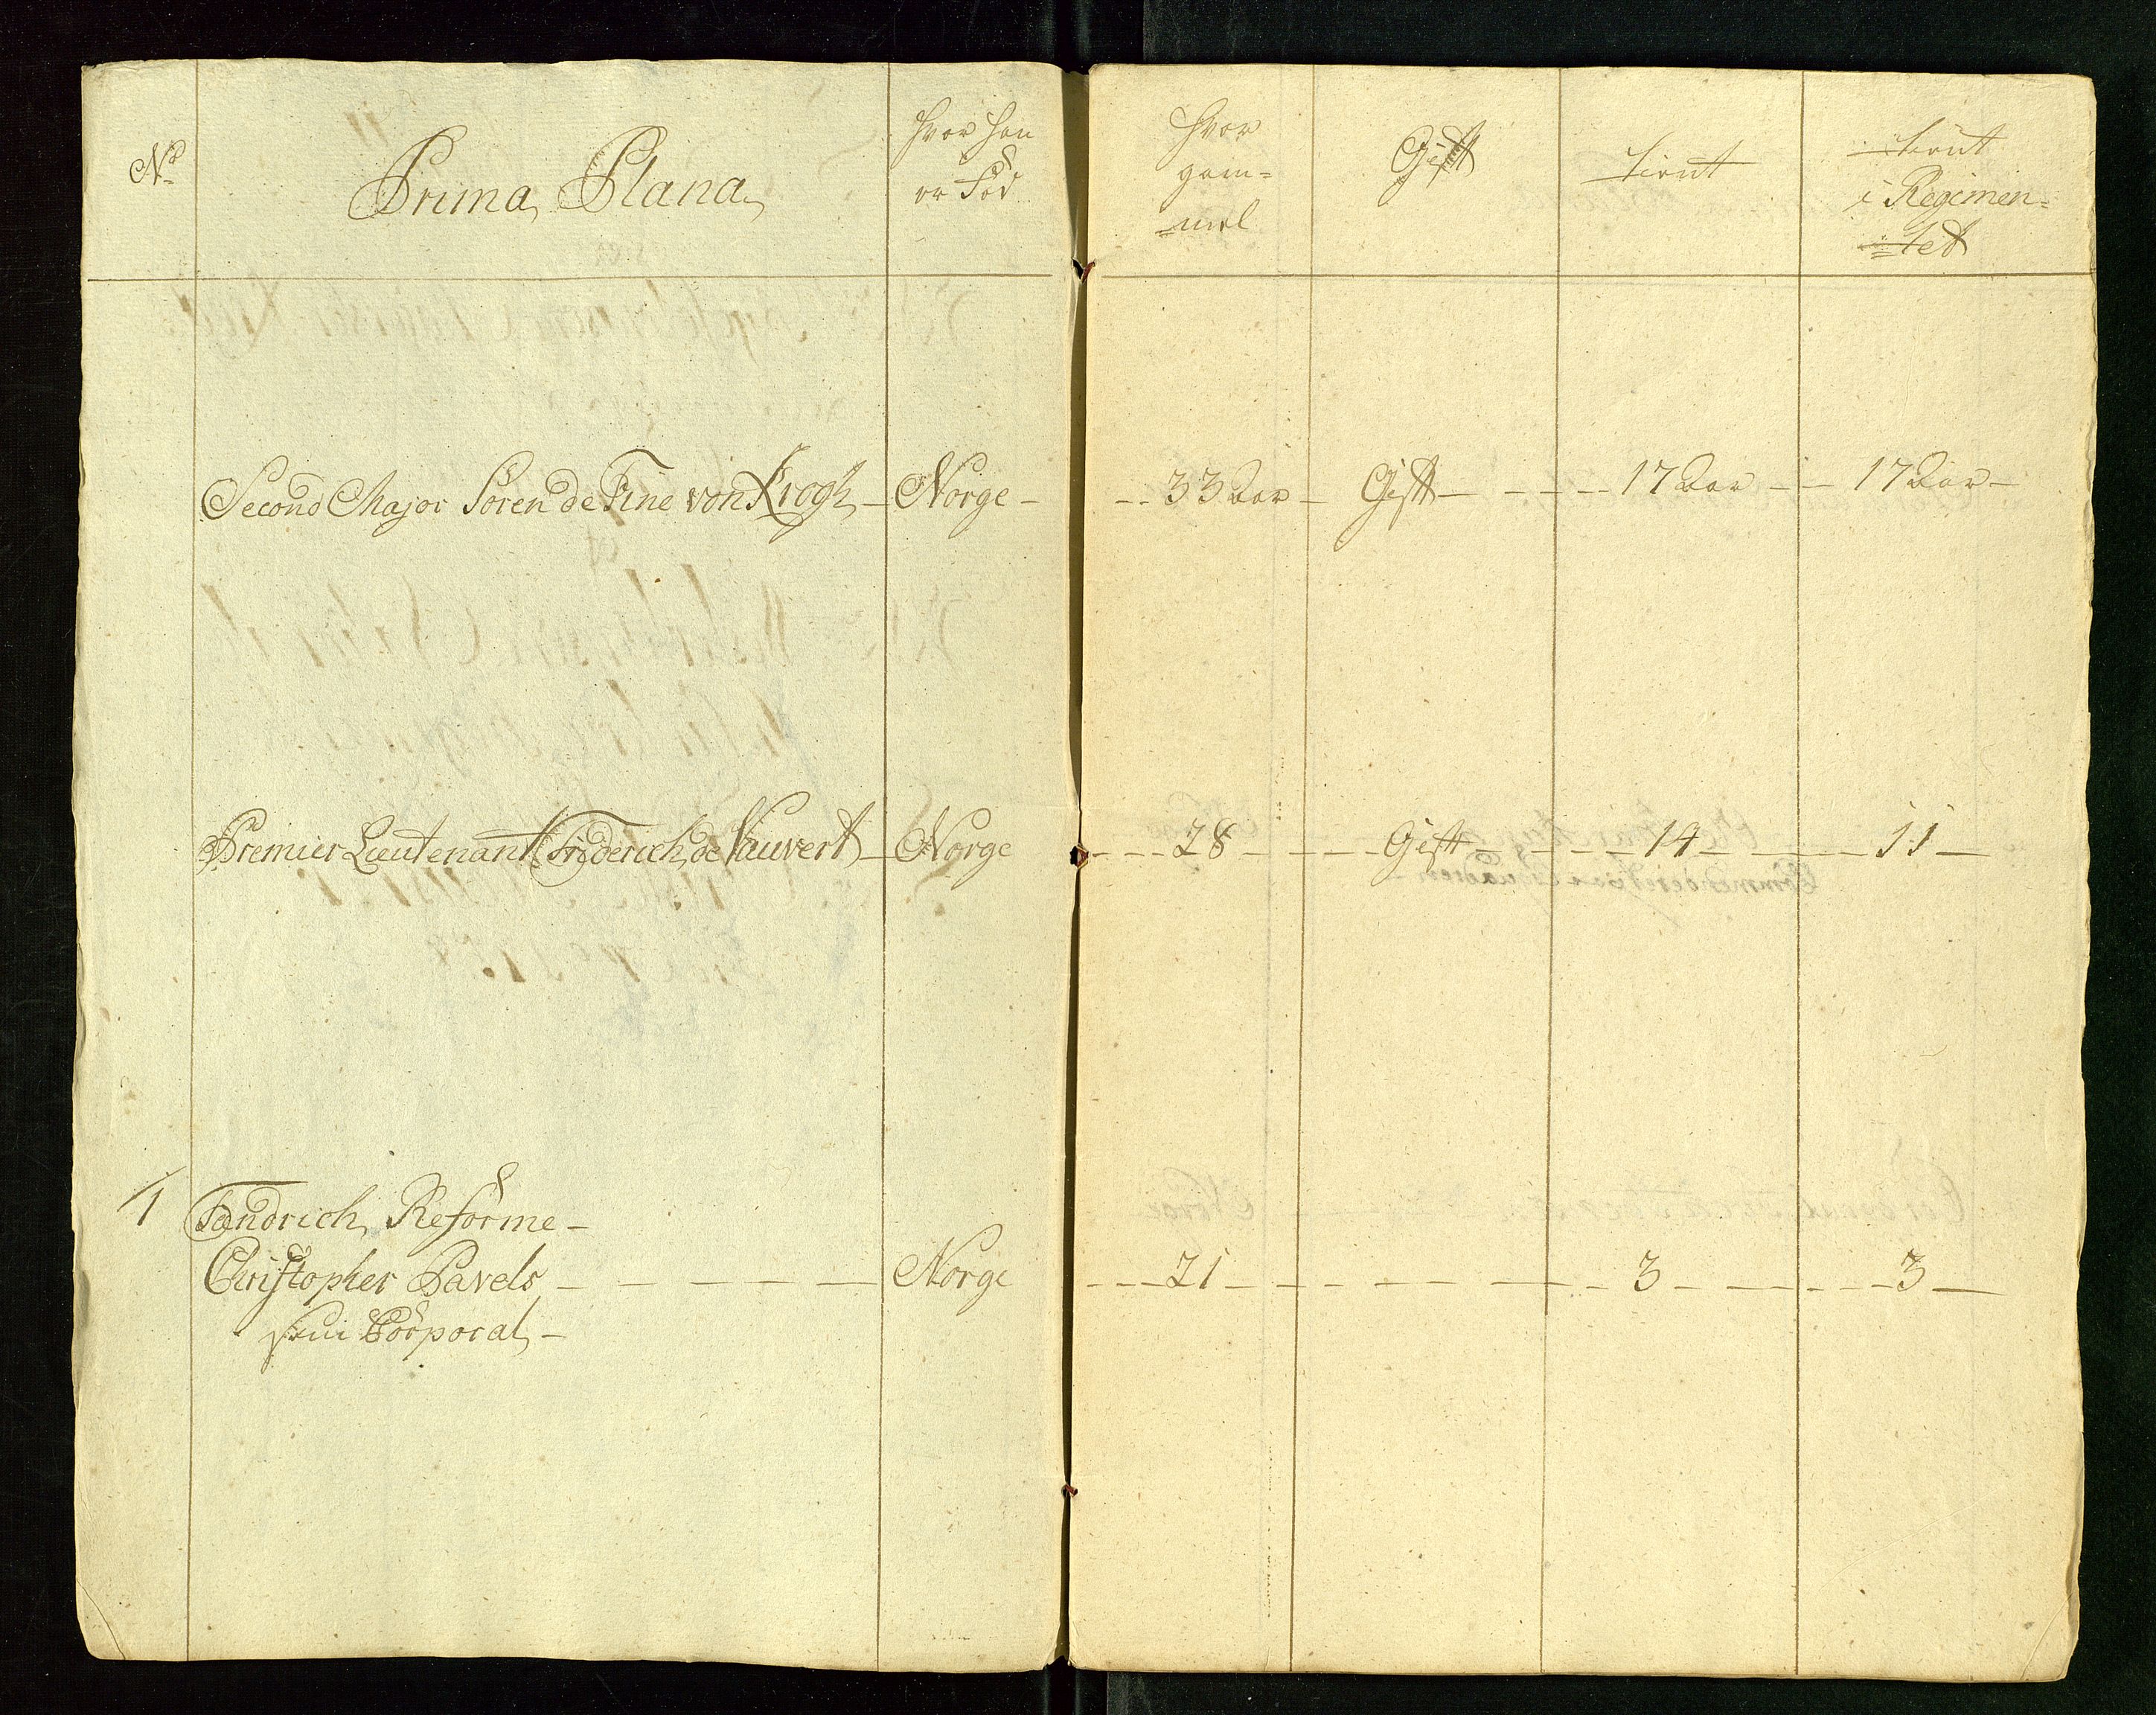 No
Prima Plana
hvor han
er Föd
hvor
gam=
=mel
Gift
tient
tient
i Regimen=
=tet
Second Major Sören de Fine von Krogh - Norge - 33 Aar - Gift - 17 Aar - 17 Aar -
Premier Lieutenant Friderich de Vauvert - Norge - 28 - Gift - 14 - 11 -
1 Fændrich Reforme -
Christopher Pavels - Norge - 21 - 3 - 3 -
Corporal -